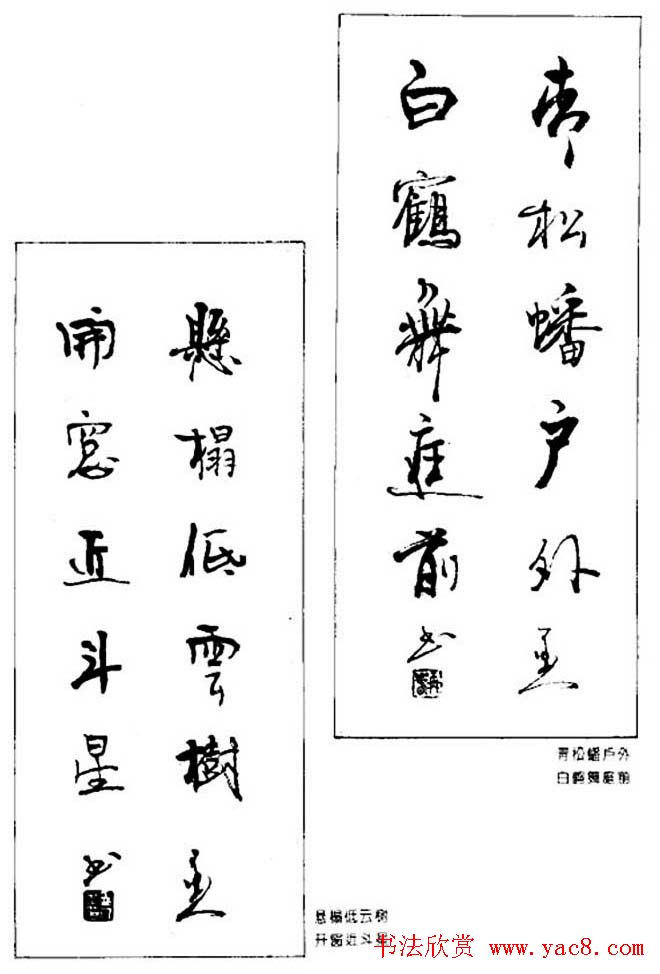 青松蟠户外
白鶴舞庭前 书
青松蟠戶外
白鹤舞庭前
懸榻低雲樹
開窓近斗星 书
悬榻低云树
开窗近斗星
书法欣赏 www.yac8.com